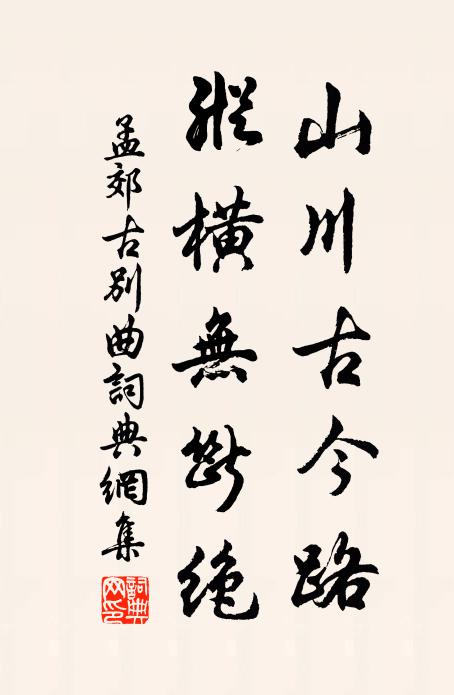 山川古今路
縱橫無斷絕
孟郊古別曲詞典網集
詞典
网印